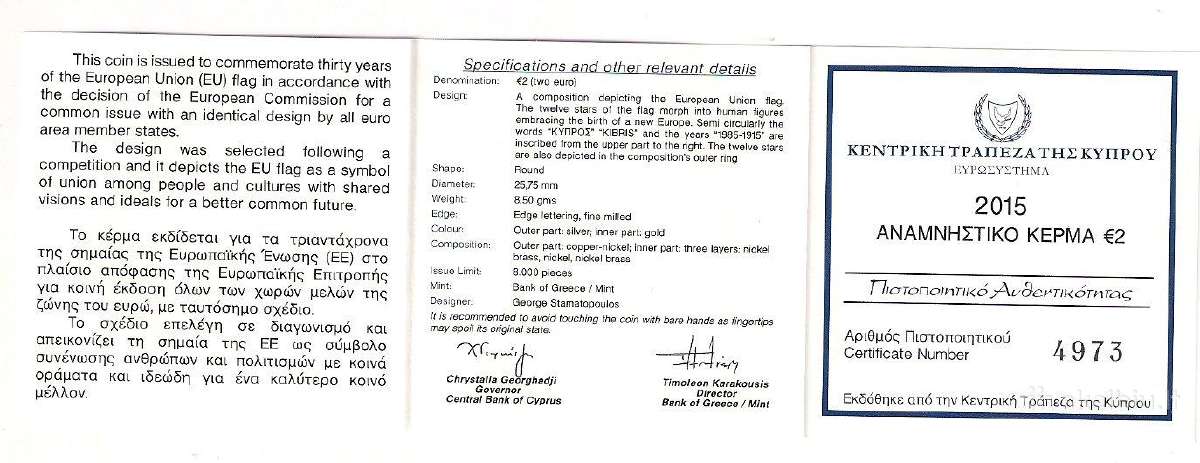 This coin is issued to commemorate thirty years
of the European Union (EU) flag in accordance with
the decision of the European Commission for a
common issue with an identical design by all euro
area member states.
The design was selected following a
competition and it depicts the EU flag as a symbol
of union among people and cultures with shared
visions and ideals for a better common future.
Το κέρμα εκδίδεται για τα τριαντάχρονα
της σημαίας της Ευρωπαϊκής Ένωσης (ΕΕ) στο
πλαίσιο απόφασης της Ευρωπαϊκής Επιτροπής
για κοινή έκδοση όλων των χωρών μελών της
ζώνης του ευρώ, με ταυτόσημο σχέδιο.
Το σχέδιο επελέγη σε διαγωνισμό και
απεικονίζει τη σημαία της ΕΕ ως σύμβολο
συνένωσης ανθρώπων και πολιτισμών με κοινά
οράματα και ιδεώδη για ένα καλύτερο κοινό
μέλλον.
Specifications and other relevant details
Denomination: €2 (two euro)
Design: A composition depicting the European Union flag.
The twelve stars of the flag morph into human figures
embracing the birth of a new Europe. Semi circularly the
words "ΚΥΠΡΟΣ" "KIBRIS" and the years "1985-1915" are
inscribed from the upper part to the right. The twelve stars
are also depicted in the composition's outer ring
Shape: Round
Diameter: 25,75 mm
Weight: 8.50 gms
Edge: Edge lettering, fine milled
Colour: Outer part: silver; inner part: gold
Composition: Outer part: copper-nickel; inner part: three layers: nickel
brass, nickel, nickel brass
Issue Limit: 8.000 pieces
Mint: Bank of Greece / Mint
Designer: George Stamatopoulos
It is recommended to avoid touching the coin with bare hands as fingertips
may spoil its original state.
Chrystalla Georghadji
Governor
Central Bank of Cyprus
Timoleon Karakousis
Director
Bank of Greece / Mint
ΚΕΝΤΡΙΚΗ ΤΡΑΠΕΖΑ ΤΗΣ ΚΥΠΡΟΥ
ΕΥΡΩΣΥΣΤΗΜΑ
2015
ΑΝΑΜΝΗΣΤΙΚΟ ΚΕΡΜΑ €2
Πιστοποιητικό Αυθεντικότητας
Αριθμός Πιστοποιητικού
Certificate Number 4973
Εκδόθηκε από την Κεντρική Τράπεζα της Κύπρου